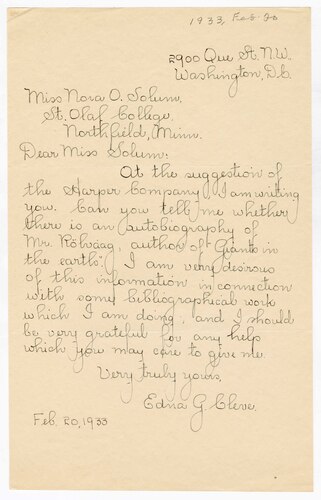 1933, Feb. 20
2900 Que St. N.W.
Washington, D.C.
Miss Nora O. Solum.
St. Olaf College.
Northfield, Minn.
Dear Miss Solum:
At the suggestion of
the Harper Company, I am writing
you. Can you tell me whether
there is an autobiography of
Mr. Rölvaag, author of "Giants in
the earth". I am very desirous
of this information in connection
with some bibliographical work
which I am doing, and I should
be very grateful for any help
which you may care to give me.
Very truly yours,
Edna G. Cleve.
Feb. 20, 1933